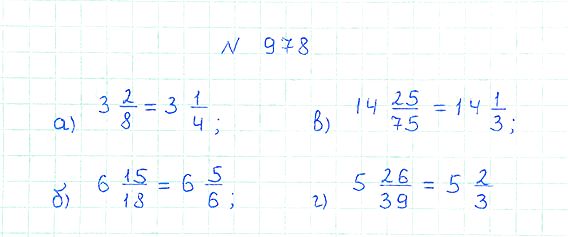 N 978
а) 3 2/8 = 3 1/4; в) 14 25/75 = 14 1/3;
б) 6 15/18 = 6 5/6; г) 5 26/39 = 5 2/3